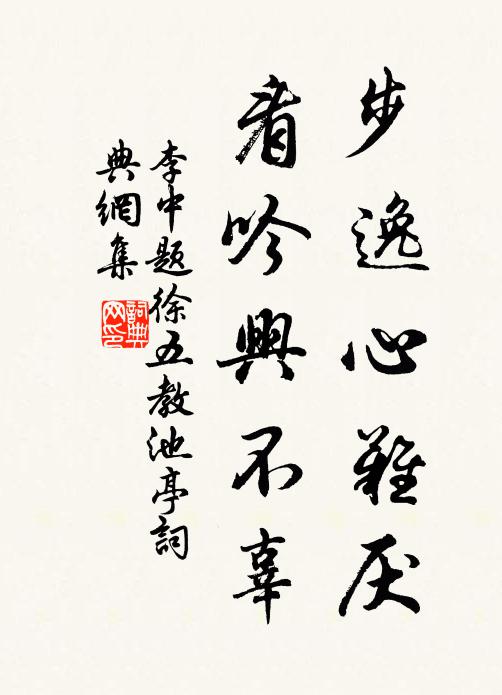 步逸心難厌
看吟興不辜
李中題徐五教池亭詞
典網集
詞典
网印